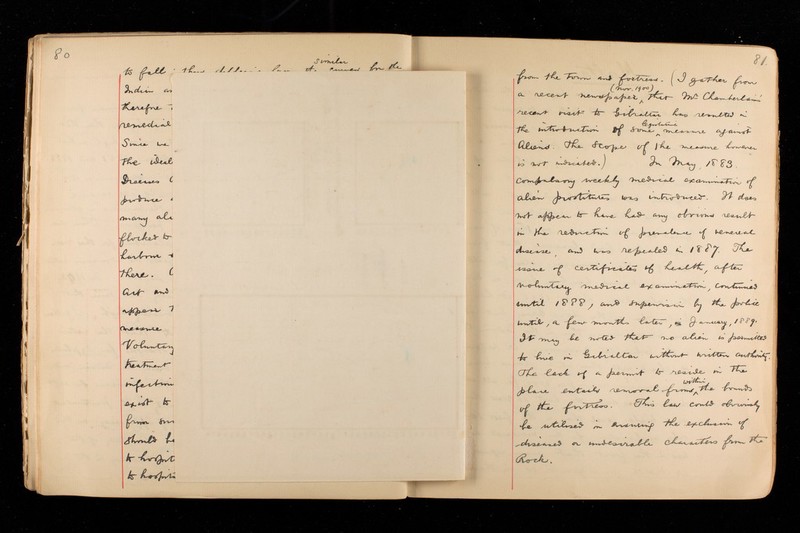 80
similar
to fall
Indian
therefore
remedial
Since
the ideal
Diseases
produce
many
flocked to
harbour
there. (
Act and
appears
measures
Voluntary
treatment
exist to
from
should
to
to
81.
from the town and fortress. (I gather from
(Nov. 1900)
a recent newspaper, that Mr Chamberlain's
recent visit to Gibraltar has resulted in
the introduction of some measure against
Aliens. The scope of the measure however
is not indicated.) In May, 1883.
compulsory weekly medical examination of
alien prostitutes was introduced. It does
not appear to have had any obvious result
in the reduction of prevalence of venereal
disease, and was repealed in 1887. The
issue of certificates of health, after
voluntary medical examination, continued
until 1888, and supervision by the police
until, a few months later, January, 1889.
It may be noted that no alien is permitted
to live in Gibraltar without written authority.
The lack of a permit to reside in the
within
place entails removal from the bounds
of the fortress. This law could obviously
be utilised in ensuring the exclusion of
diseased or undesirable characters from the
Rock.